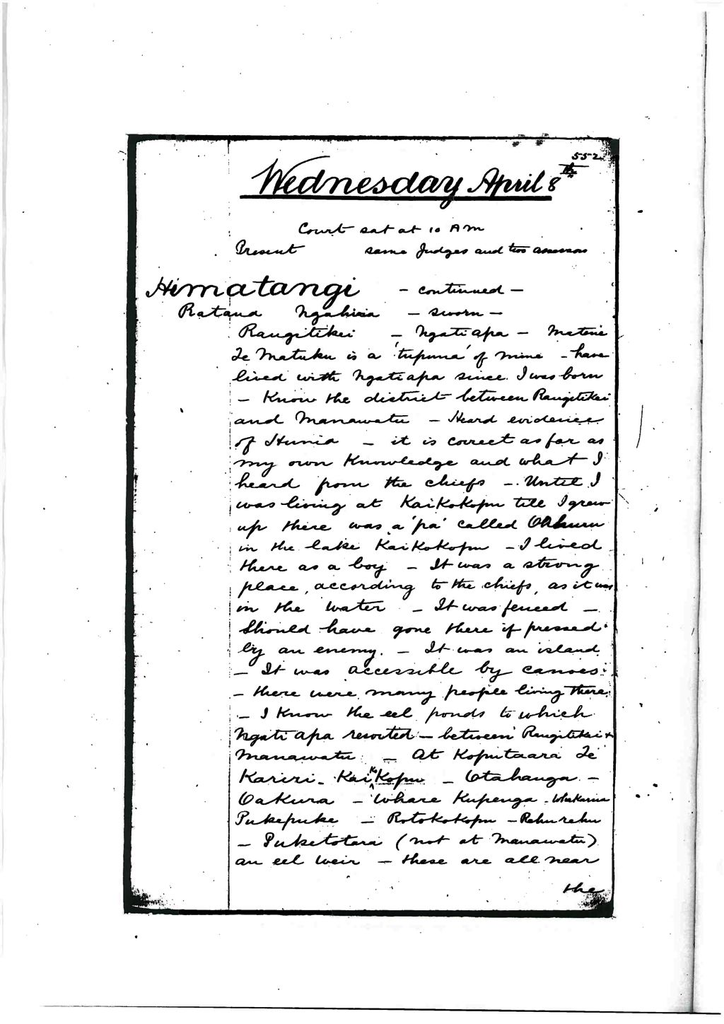 552
Wednesday April 8th
Court sat at 10 AM
Present same Judges and two assessors
Himatangi - continued -
Ratana Ngahina - sworn -
Rangitikei - Ngatiapa - Matene
Te Matuku is a 'tupuna' of mine - have
lived with Ngatiapa since I was born
- Know the district between Rangitikei
and Manawatu - Heard evidence
of Hunia - it is correct as far as
my own Knowledge and what I
heard from the chiefs - Until I
was living at KaiKoKopu till I grew
up there was a 'pa' called
in the lake KaiKoKopu - I lived
there as a boy - It was a strong
place, according to the chiefs, as it was
in the water - It was fenced -
Should have gone there if pressed
by an enemy. - It was an island
- It was accessible by canoes
- there were many people living there
- I Know the eel ponds to which
Ngati apa resorted - between Rangitikei &
Manawatu - At Koputaara Te
Kariri - KaiKoKopu - Otahanga -
Oakura - Whare Kupenga -
Pukepuke - RotoKoKopu - Rehurehu
- Puketotara (not at Manawatu)
an eel weir - these are all near
the